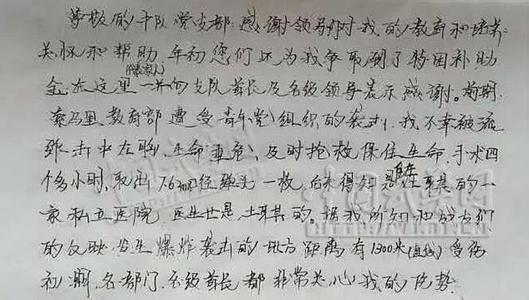 尊敬的斗队党支部:感谢领导对我的教育和培养:
关怀和帮助 年初您们还为我争取到了特困补助
金.在这里一并向支队首长及各级领导表示感谢。前期
索马里教育部遭受青年党组织的袭击,我不幸被流
弹击中左胸,生命垂危,及时抢救,保住生命,手术四
个多小时,取出7.62口径弹头一枚,后来得知是在土耳其的一
家私立医院 医生也是土耳其的。据我所知和战友们
的反映,发生爆炸袭击的地方距离有1300米(直线)受伤
初期,各部门、各级首长都非常关心我的伤势